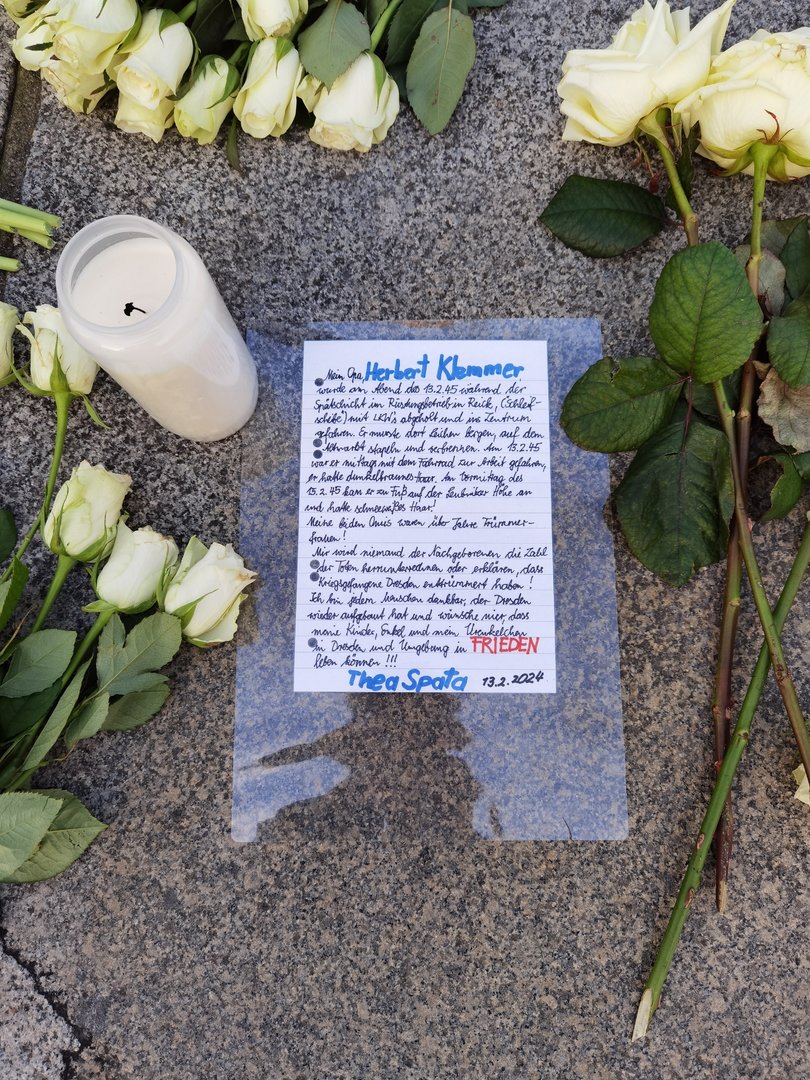 Mein Opa, Herbert Klemmer
wurde am Abend des 13.2.45 während der
Spätschicht im Rüstungsbetrieb in Reick, (Schleif-
scheibe) mit LKW's abgeholt und ins Zentrum
gefahren. Er musste dort Leichen bergen, auf dem
Altmarkt stapeln und verbrennen. Am 13.2.45
war er mittags mit dem Fahrrad zur Arbeit gefahren,
er hatte dunkelbraunes Haar. Am Vormittag des
15.2.45 kam er zu Fuß auf der Leubnitzer Höhe an
und hatte schneeweißes Haar!
Meine beiden Omis waren über Jahre Trümmer-
frauen!
Mir wird niemand der Nachgeborenen die Zahl
der Toten herrunterrechnen oder erklären, dass
Kriegsgefangene Dresden enttrümmert haben!
Ich bin jedem Menschen dankbar, der Dresden
wieder aufgebaut hat und wünsche mir, dass
meine Kinder, Enkel und mein Urenkelchen
in Dresden und Umgebung in FRIEDEN
leben können!!!
Thea Spata 13.2.2024